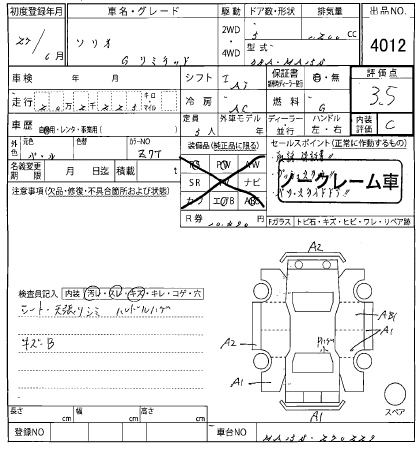 初度登録年月 車名・グレード 駆動 ドア数・形状 排気量 出品NO.
27/6月 ソリオ Gリミテッド 2WD・4WD 5 1200 cc 4012
型式 DBA-MA15S
車検 年 月 シフト IAT 保証書 有・無 評価点
走行 キロ・マイル 冷房 AC 燃料 G 3.5
車歴 自家用・レンタ・事業用( ) 定員 5人 外車モデル 年 ディーラー・並行 ハンドル 左・右 内装評価 C
外色 元色 パール 色替 カラーNO Z7T
装備品(純正品に限る) セールスポイント(正常に作動するもの)
名義変更期限 月 日迄 積載 t
PS PW AW
SR ナビ
カワ エアB
ノークレーム車
注意事項(欠品・修復・不具合箇所および状態)
R券
Fガラス トビ石・キズ・ヒビ・ワレ・リペア跡
検査員記入 内装 汚レ・スレ・キズ・キレ・コゲ・穴
シート・天張りシミ ハンドルハゲ
キズ-B
A2
A2
A1
A1
A1
A1
スペア
長さ cm 幅 cm 高さ cm
登録NO 車台NO MA15S-